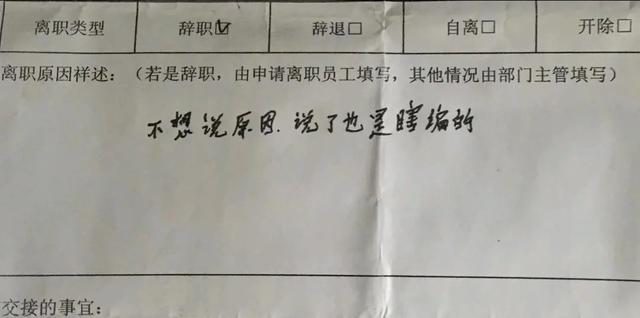 离职类型 辞职☑ 辞退□ 自离□ 开除□
离职原因祥述:(若是辞职,由申请离职员工填写,其他情况由部门主管填写)
不想说原因.说了也是瞎编的
交接的事宜: